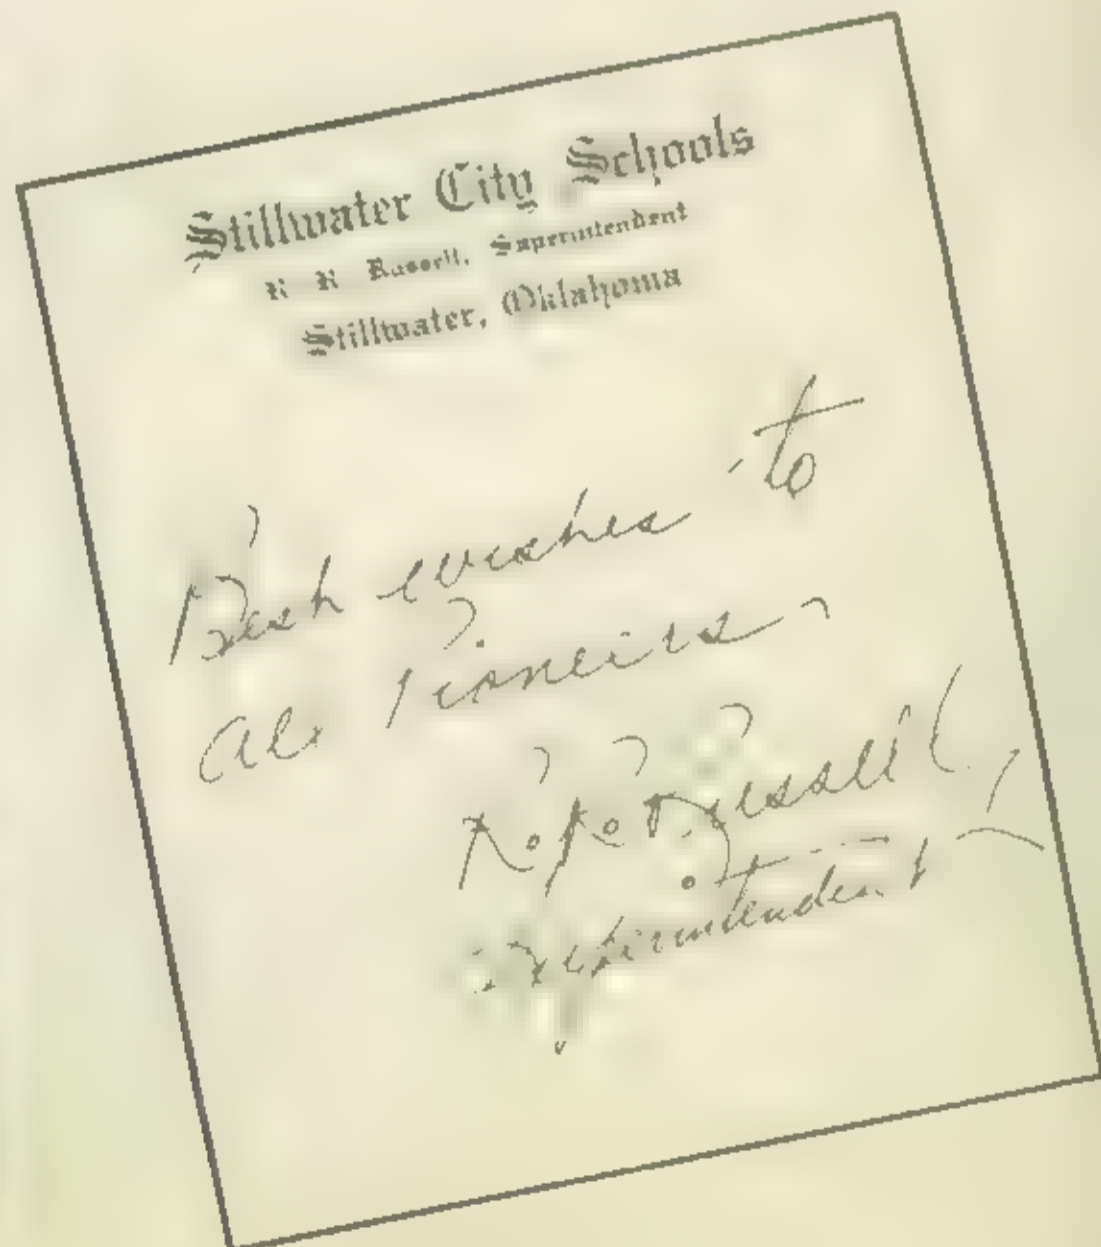 Stillwater City Schools
R R Russell, Superintendent
Stillwater, Oklahoma
Best wishes to
all Pioneers
R. R. Russell,
Superintendent